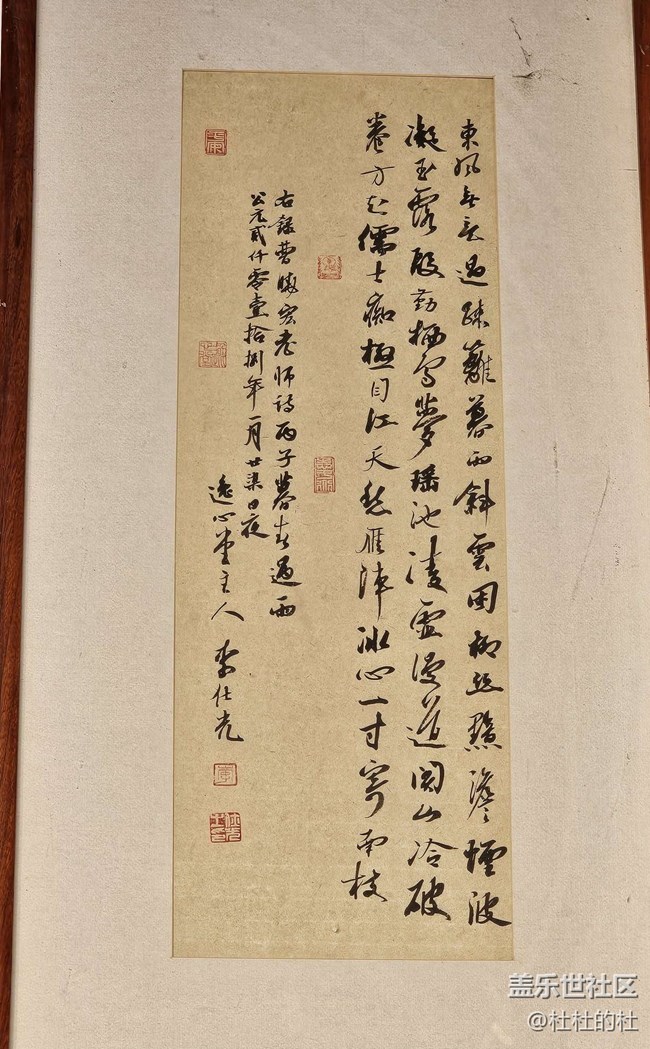 東風無意過疎籬暮雨斜雲困柳絲黯澹煙波
凝玉露殷勤栖鳥夢瑤池凌虛漫道関山冷破
卷方知儒士痴極目江天愁雁陣冰心一寸寄南枝
右錄曹曉宏老师詩丙子暮春遇雨
公元貳仟零壹拾捌年一月廿柒日夜
逸心堂主人 李仕光
盖乐世社区
@杜杜的杜